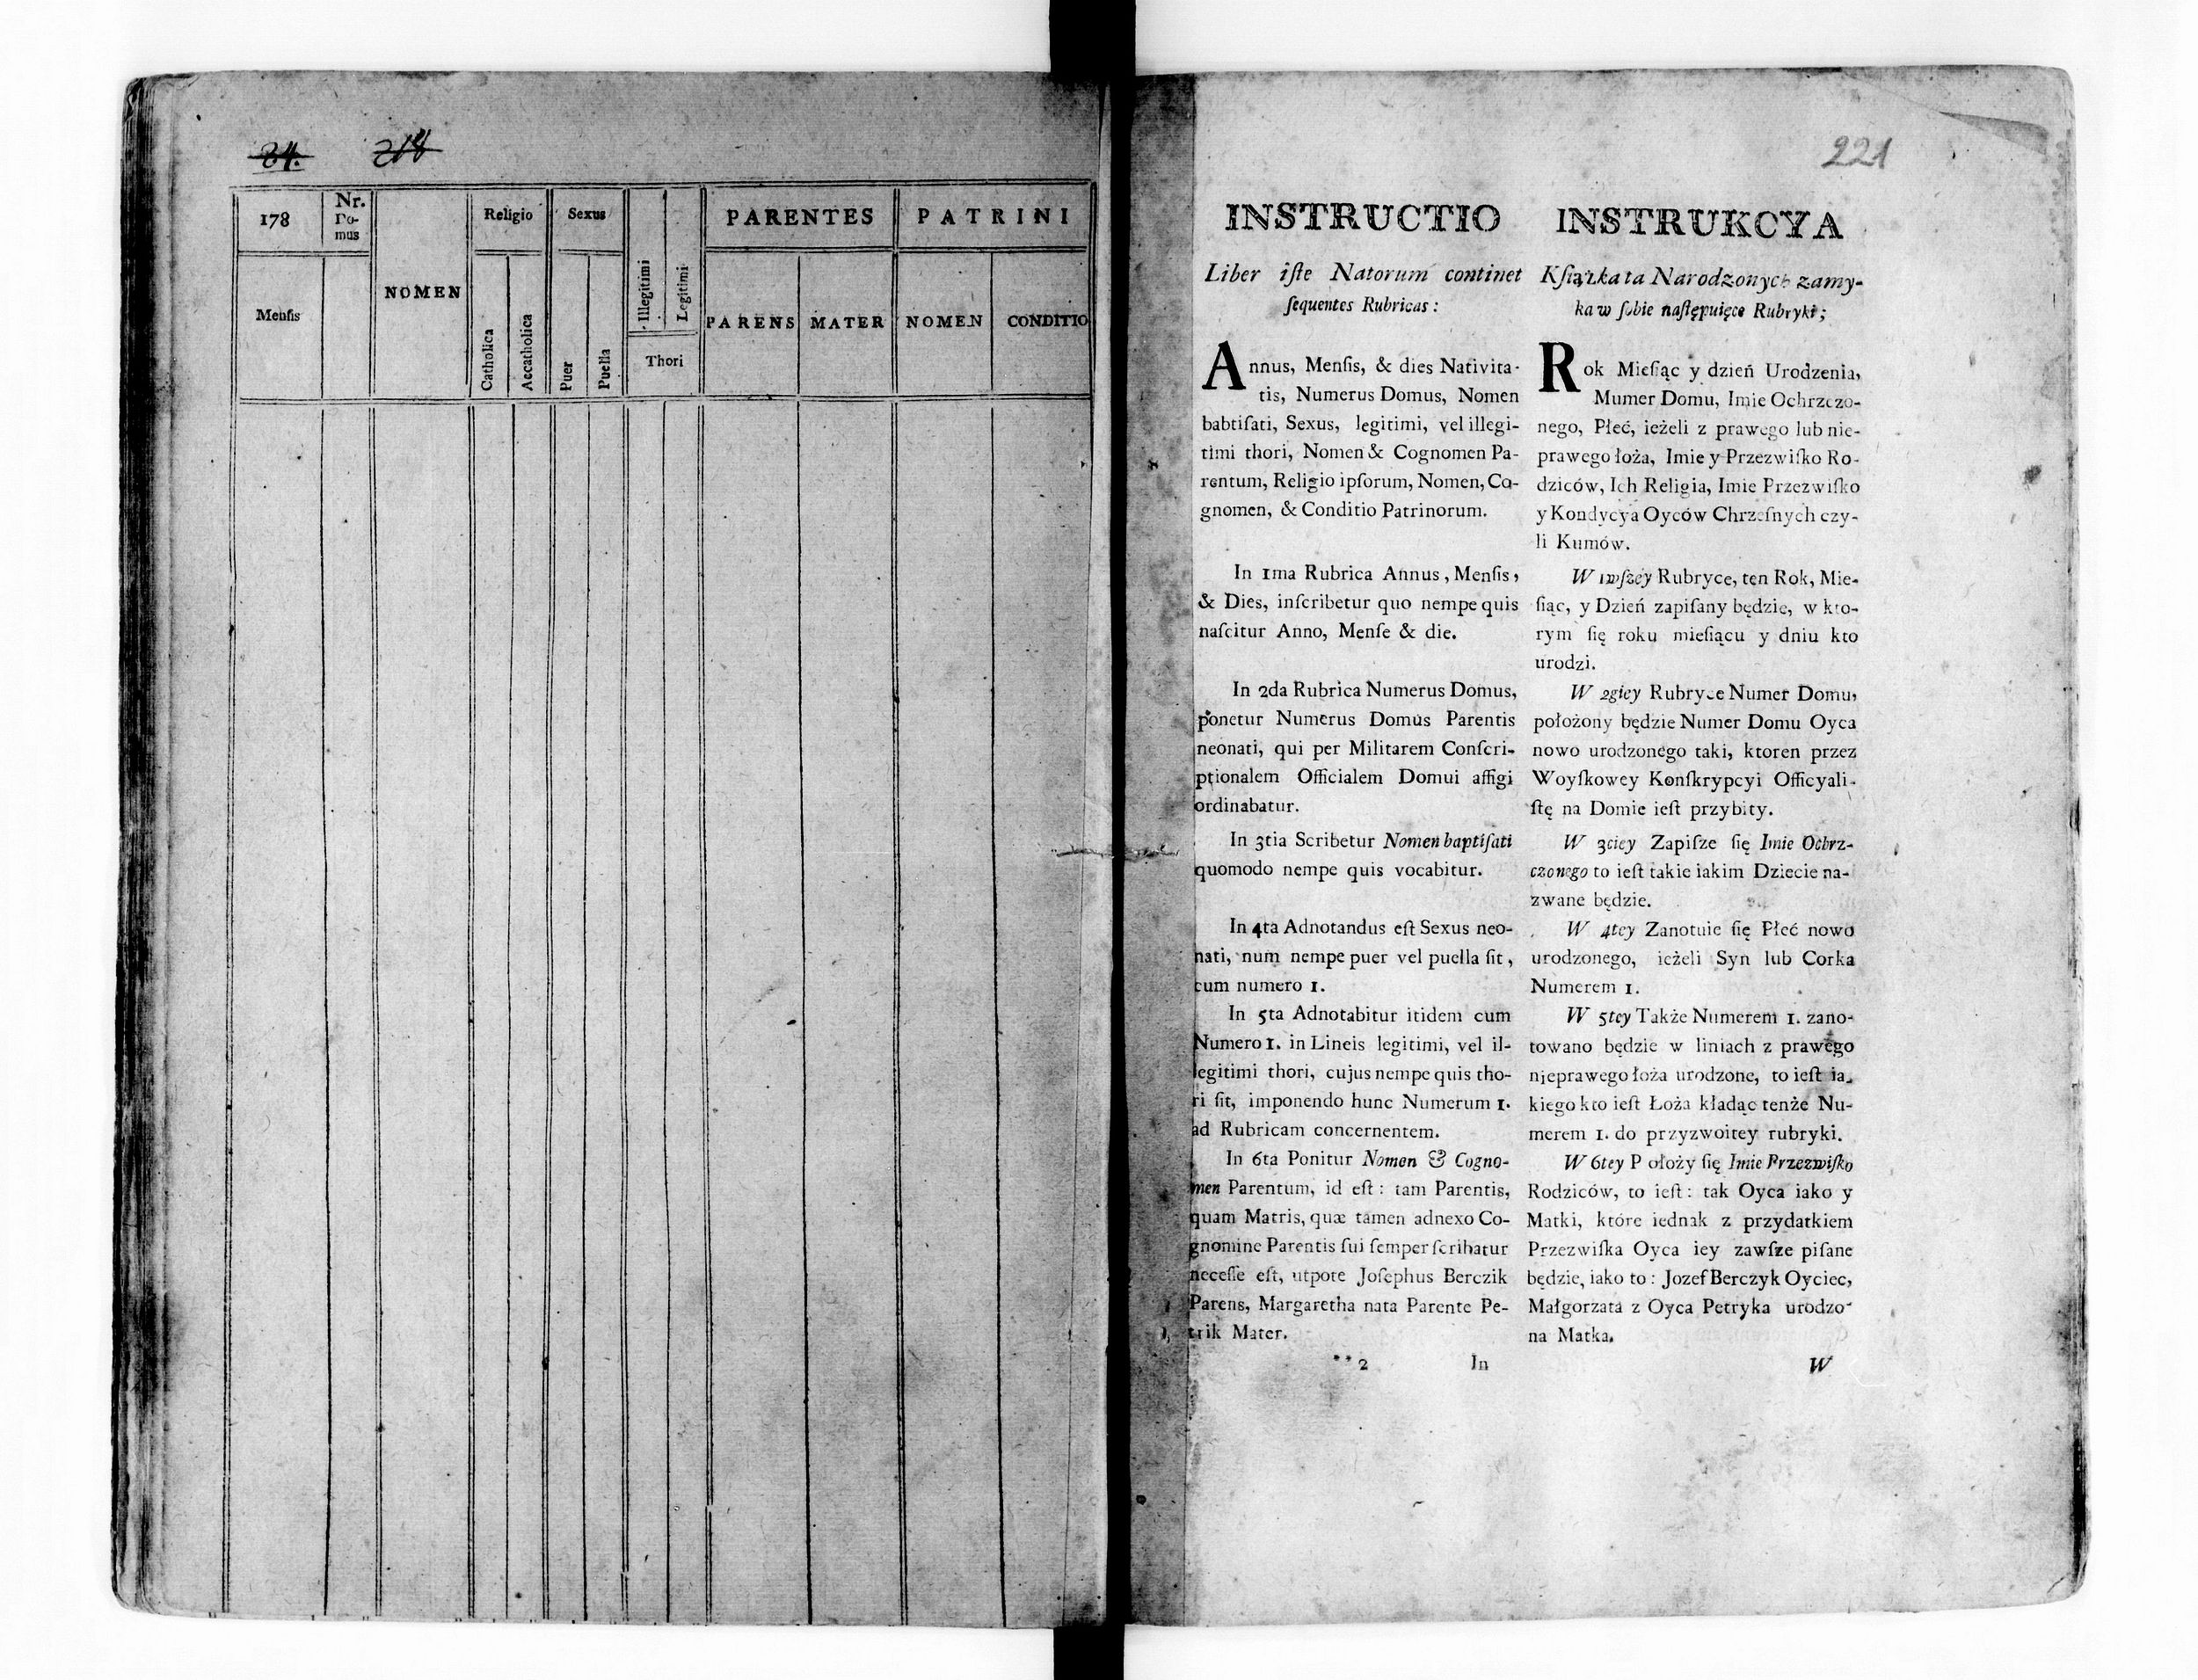 24. 218
178
Nr.
Do-
mus
Mensis
NOMEN
Religio
Catholica
Accatholica
Sexus
Puer
Puella
Illegitimi
Legitimi
Thori
PARENTES
PARENS MATER
PATRINI
NOMEN CONDITIO
221
INSTRUCTIO
Liber iſte Natorum continet
ſequentes Rubricas:
Annus, Menſis, & dies Nativita-
tis, Numerus Domus, Nomen
babtiſati, Sexus, legitimi, vel illegi-
timi thori, Nomen & Cognomen Pa-
rentum, Religio ipſorum, Nomen, Co-
gnomen, & Conditio Patrinorum.
In 1ma Rubrica Annus, Menſis,
& Dies, inſcribetur quo nempe quis
naſcitur Anno, Menſe & die.
In 2da Rubrica Numerus Domus,
ponetur Numerus Domus Parentis
neonati, qui per Militarem Conſcri-
ptionalem Officialem Domui affigi
ordinabatur.
In 3tia Scribetur Nomen baptiſati
quomodo nempe quis vocabitur.
In 4ta Adnotandus eſt Sexus neo-
nati, num nempe puer vel puella ſit,
cum numero 1.
In 5ta Adnotabitur itidem cum
Numero 1. in Lineis legitimi, vel il-
legitimi thori, cujus nempe quis tho-
ri ſit, imponendo hunc Numerum 1.
ad Rubricam concernentem.
In 6ta Ponitur Nomen & Cogno-
men Parentum, id eſt: tam Parentis,
quam Matris, quæ tamen adnexo Co-
gnomine Parentis ſui ſemper ſcribatur
neceſſe eſt, utpote Joſephus Berczik
Parens, Margaretha nata Parente Pe-
trik Mater.
**2 In
INSTRUKCYA
Kſiążka ta Narodzonych zamy-
ka w ſobie naſtępuięce Rubryki;
Rok Mieſiąc y dzień Urodzenia,
Mumer Domu, Imie Ochrzczo-
nego, Płeć, ieżeli z prawego lub nie-
prawego łoża, Imie y Przezwiſko Ro-
dziców, Ich Religia, Imie Przezwiſko
y Kondycya Oyców Chrzeſnych czy-
li Kumów.
W 1wſzey Rubryce, ten Rok, Mie-
ſiąc, y Dzień zapiſany będzie, w kto-
rym ſię roku mieſiącu y dniu kto
urodzi.
W 2giey Rubryce Numer Domu,
położony będzie Numer Domu Oyca
nowo urodzonego taki, ktoren przez
Woyſkowey Konſkrypcyi Officyali-
ſtę na Domie ieſt przybity.
W 3ciey Zapiſze ſię Imie Ochrz-
czonego to ieſt takie iakim Dziecie na-
zwane będzie.
W 4tey Zanotuie ſię Płeć nowo
urodzonego, ieżeli Syn lub Corka
Numerem 1.
W 5tey Także Numerem 1. zano-
towano będzie w liniach z prawego
nieprawego łoża urodzone, to ieſt ia-
kiego kto ieſt Łoża kładąc tenże Nu-
merem 1. do przyzwoitey rubryki.
W 6tey P ołoży ſię Imie Przezwiſko
Rodziców, to ieſt: tak Oyca iako y
Matki, które iednak z przydatkiem
Przezwiſka Oyca iey zawſze piſane
będzie, iako to: Jozef Berczyk Oyciec,
Małgorzata z Oyca Petryka urodzo-
na Matka.
W